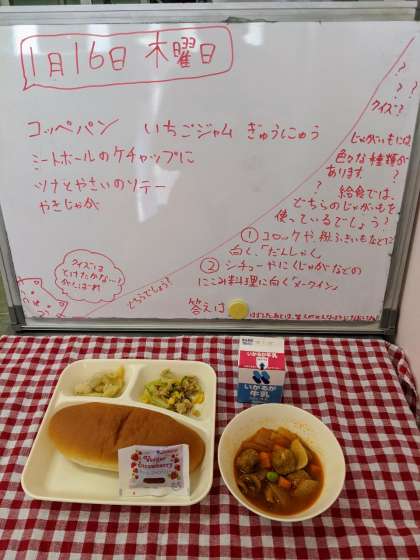 1月16日 木曜日
コッペパン いちごジャム ぎゅうにゅう
ミートボールのケチャップに
ツナとやさいのソテー
やきじゃが
?
? ?
クイズ?
じゃがいもには
色々な種類が
あります。 ?
? 給食では、
どちらのじゃがいもを
使っているでしょう?
① コロッケや、粉ふきいもなどに
向く、「だんしゃく」
② シチューやにくじゃがなどの
にこみ料理に向く「メークイン」
どっちでしょう?
答えは
クイズは
とけたかな…?
がんばれ
いかるが牛乳
いかるが
牛乳
Strawberry